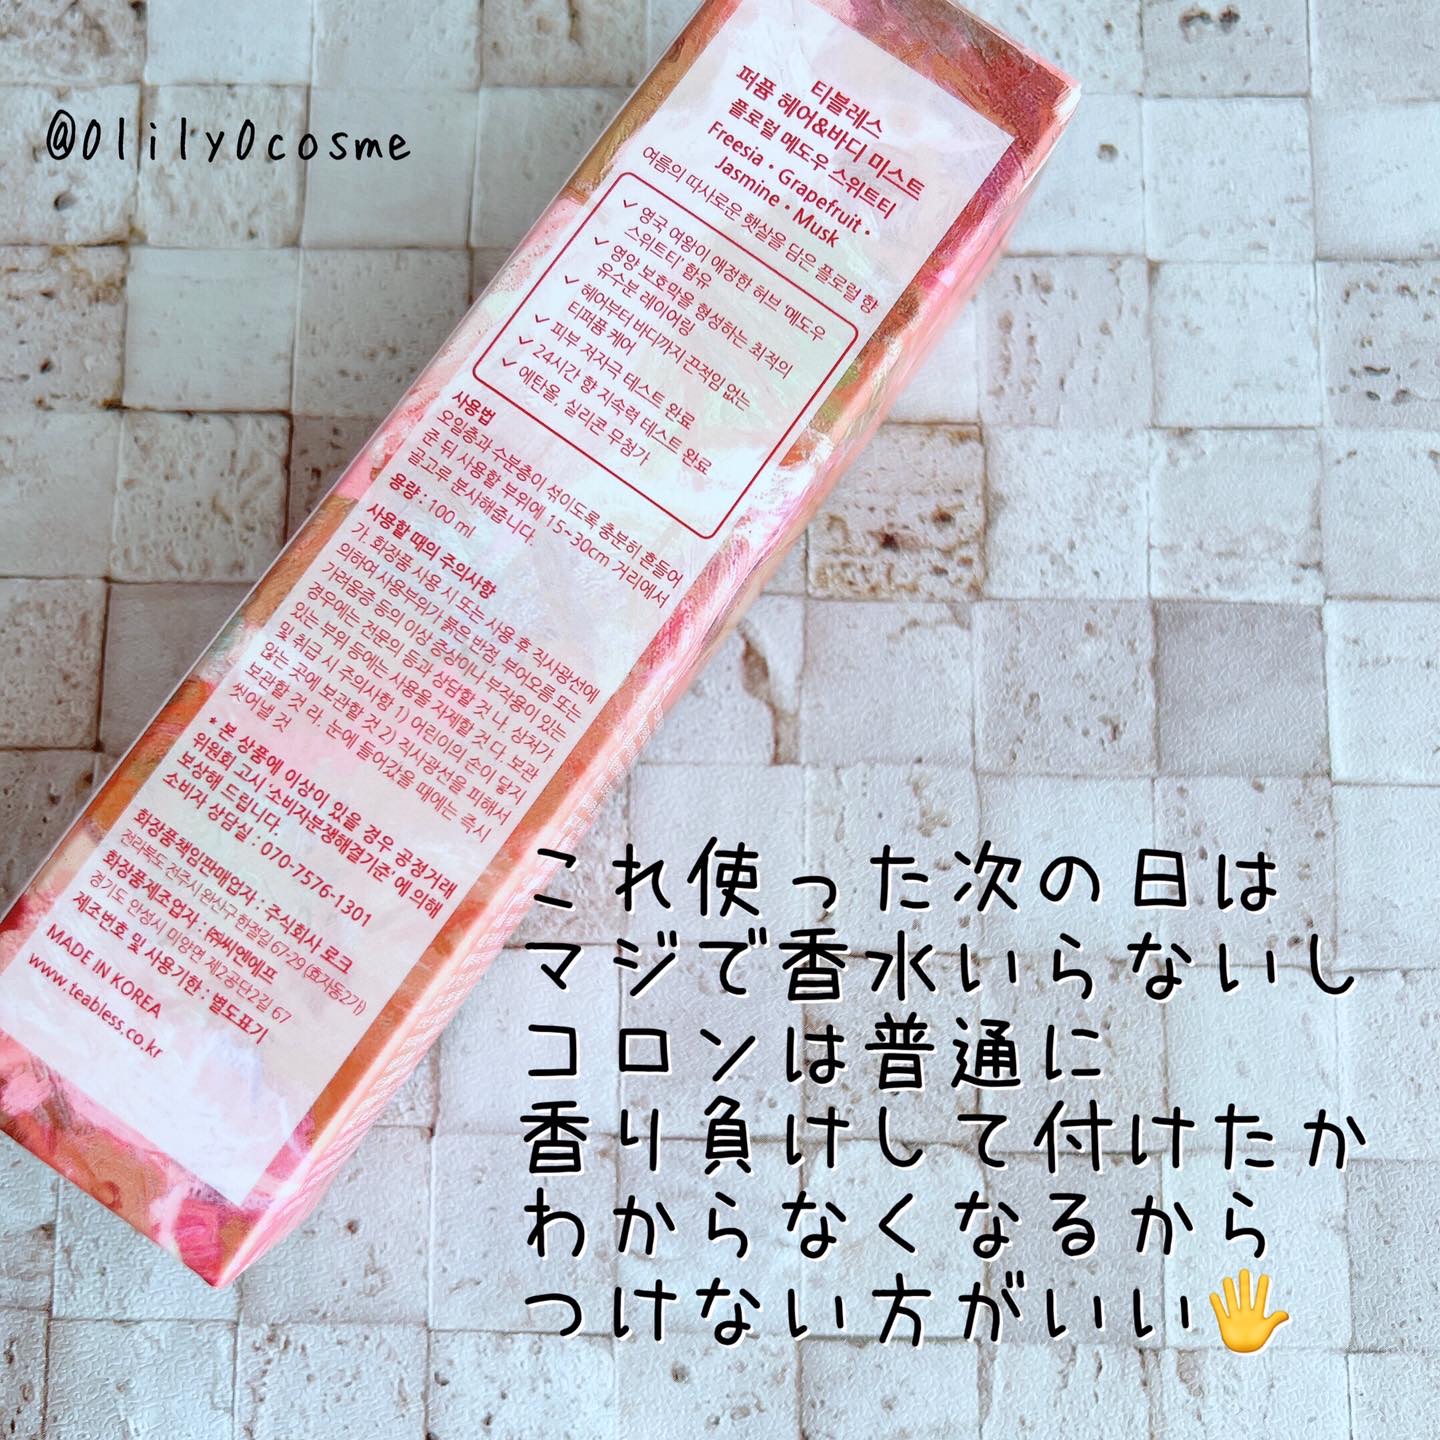 @0lily0cosme
티블레스
퍼퓸 헤어&바디 미스트
플로럴 메도우 스위트티
Freesia・Grapefruit・
Jasmine・Musk
여름의 따사로운 햇살을 담은 플로럴 향
✓ 영국 여왕이 애정한 허브 '메도우
스위트티' 함유
✓ 영양 보호막을 형성하는 최적의
유수분 레이어링
✓ 헤어부터 바디까지 끈적임 없는
티퍼퓸 케어
✓ 피부 저자극 테스트 완료
✓ 24시간 향 지속력 테스트 완료
✓ 에탄올, 실리콘 무첨가
사용법
오일층과 수분층이 섞이도록 충분히 흔들어
준 뒤 사용할 부위에 15~30cm 거리에서
골고루 분사해줍니다.
용량 : 100 ml
사용할 때의 주의사항
가. 화장품 사용 시 또는 사용 후 직사광선에
의하여 사용부위가 붉은 반점, 부어오름 또는
가려움증 등의 이상 증상이나 부작용이 있는
경우에는 전문의 등과 상담할 것 나. 상처가
있는 부위 등에는 사용을 자제할 것 다. 보관
및 취급 시 주의사항 1) 어린이의 손이 닿지
않는 곳에 보관할 것 2) 직사광선을 피해서
보관할 것 라. 눈에 들어갔을 때에는 즉시
씻어낼 것
* 본 상품에 이상이 있을 경우 공정거래
위원회 고시 '소비자분쟁해결기준'에 의해
보상해 드립니다.
소비자 상담실 : 070-7576-1301
화장품책임판매업자 : 주식회사 로크
전라북도 전주시 완산구 한절길 67-29 (효자동2가)
화장품제조업자 : ㈜씨엔에프
경기도 안성시 미양면 제2공단2길 67
제조번호 및 사용기한 : 별도표기
MADE IN KOREA
www.teabless.co.kr
これ使った次の日は
マジで香水いらないし
コロンは普通に
香り負けして付けたか
わからなくなるから
つけない方がいい🖐